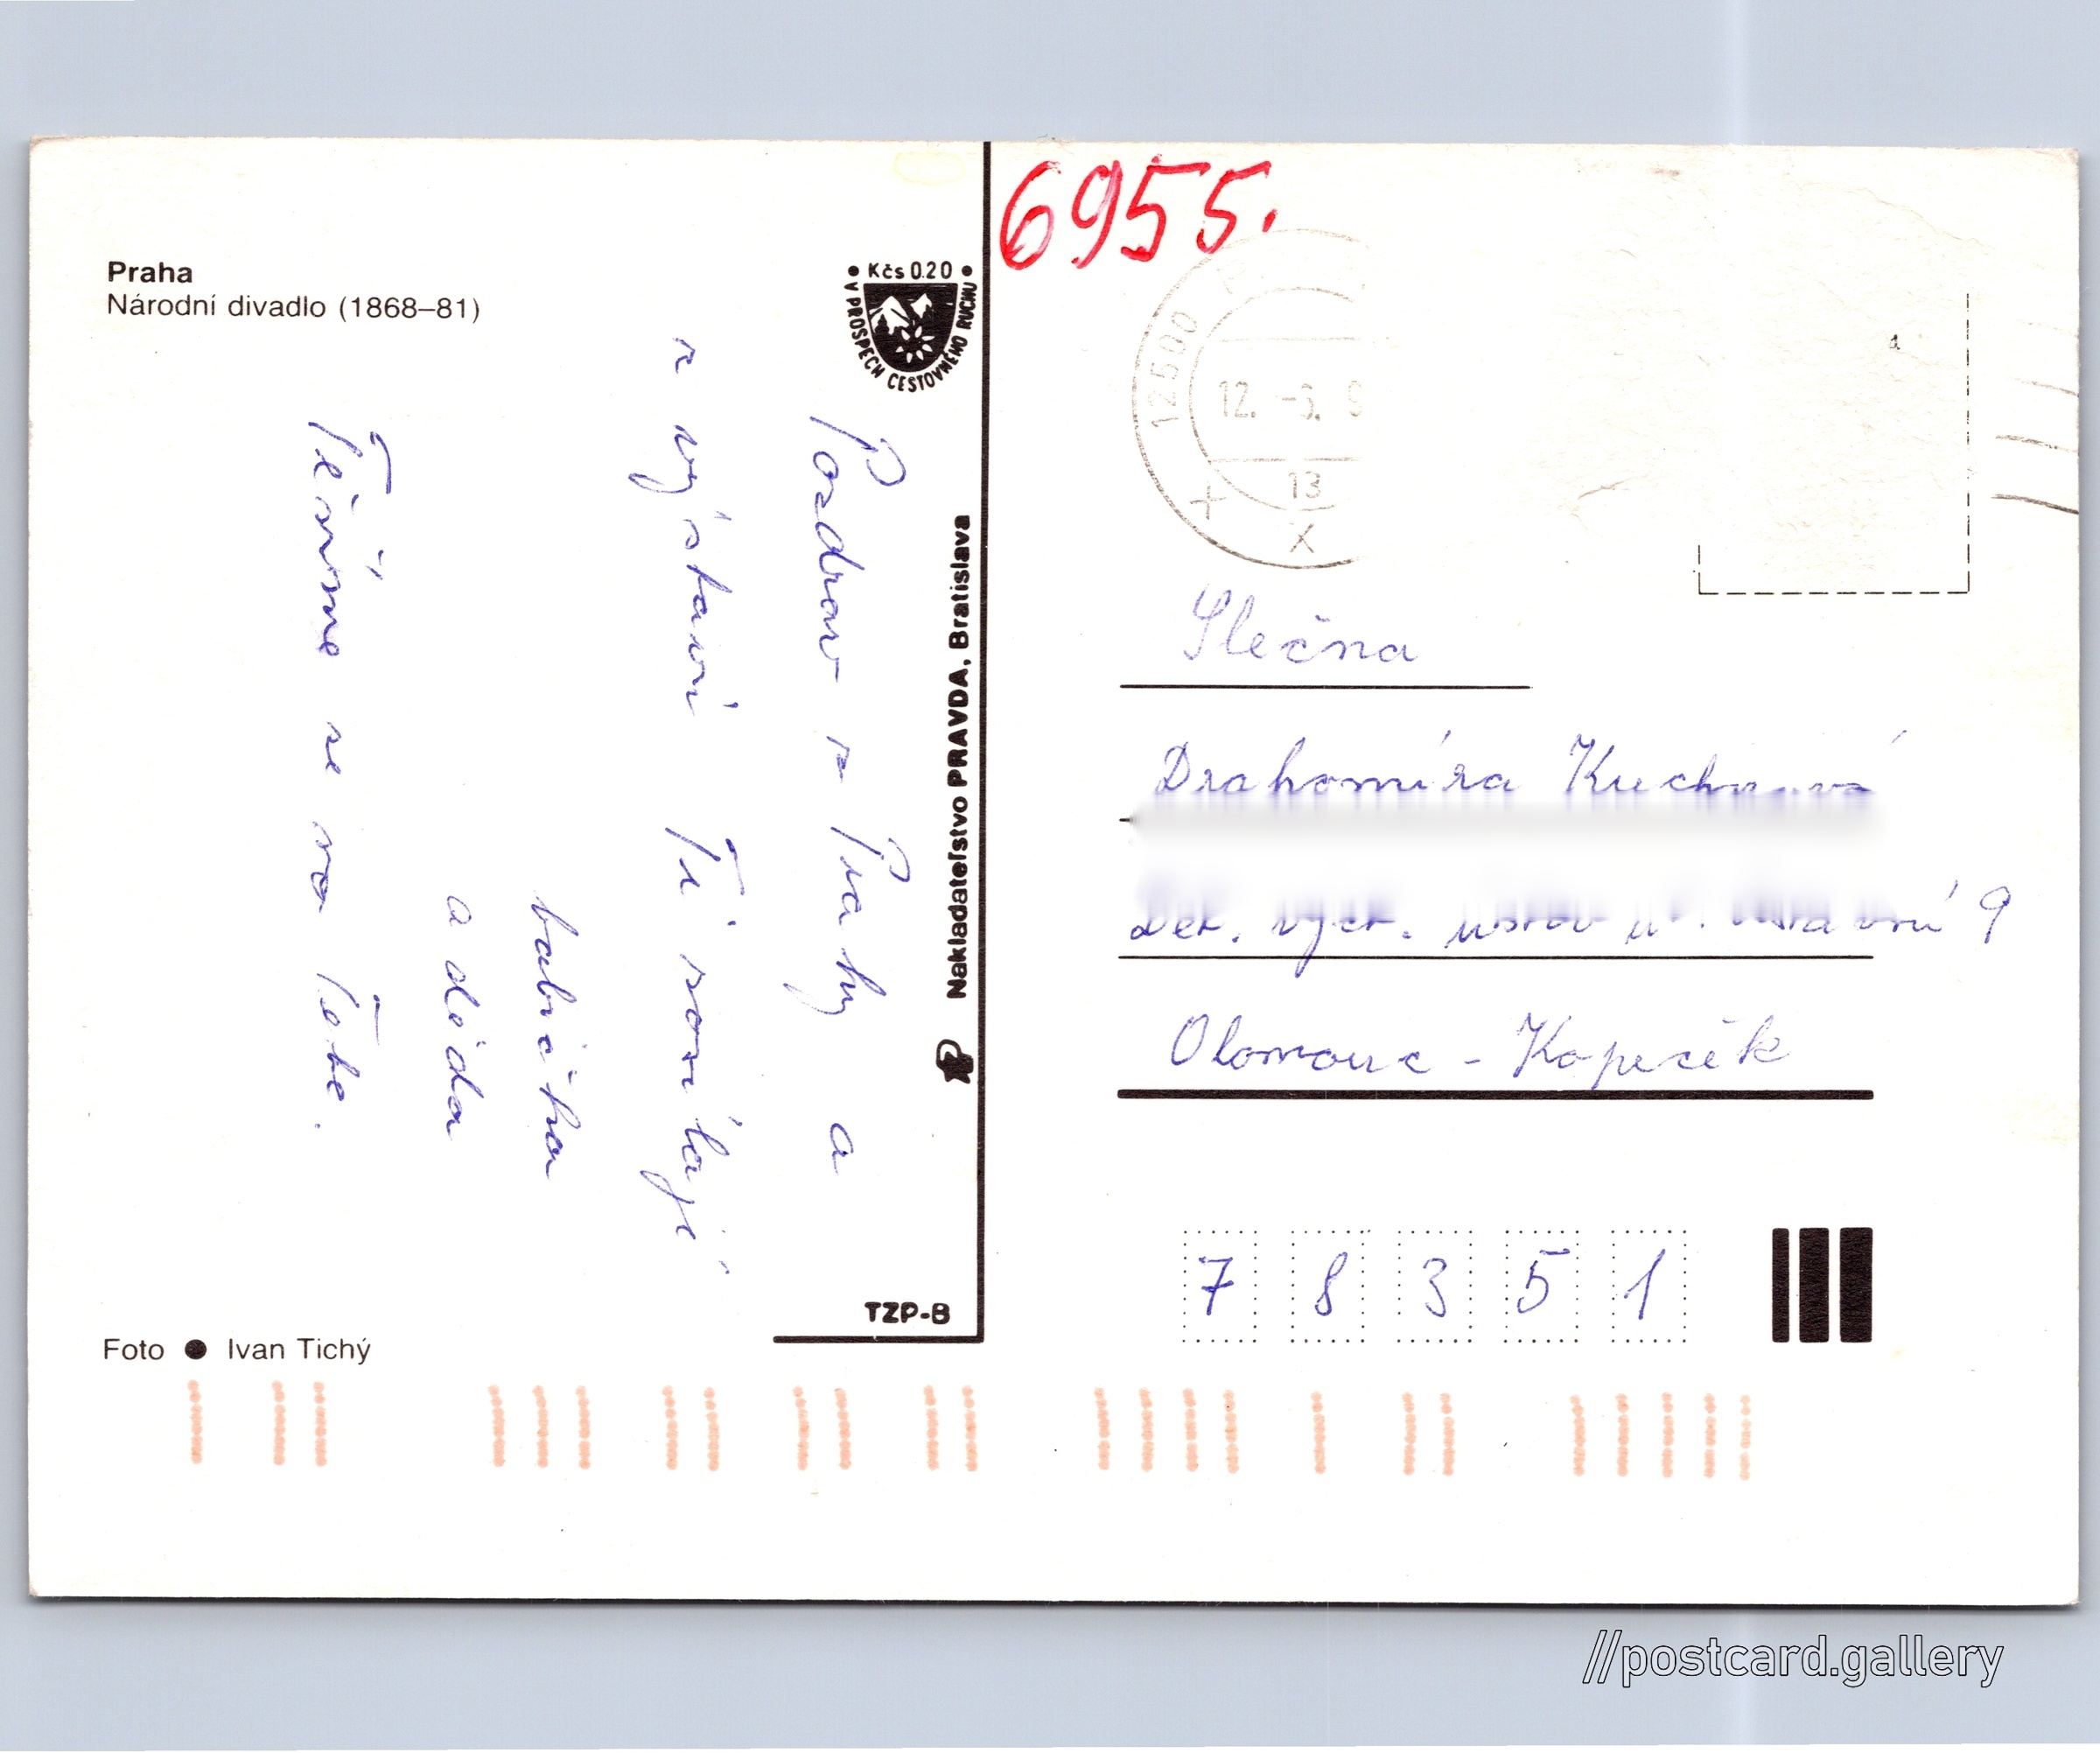 Praha
Národní divadlo (1868–81)
• Kčs 0.20 •
V PROSPECH CESTOVNÉHO RUCHU
Pozdrav z Prahy a
z výstavi Ti posílají
babička
a děda
Těšíme se na Tebe.
Nakladateľstvo PRAVDA, Bratislava
TZP-B
Foto ● Ivan Tichý
6955.
12500
12.
13
Slečna
Drahomíra
Dět. vých. ústav 9
Olomouc - Kopeček
7 8 3 5 1
//postcard.gallery